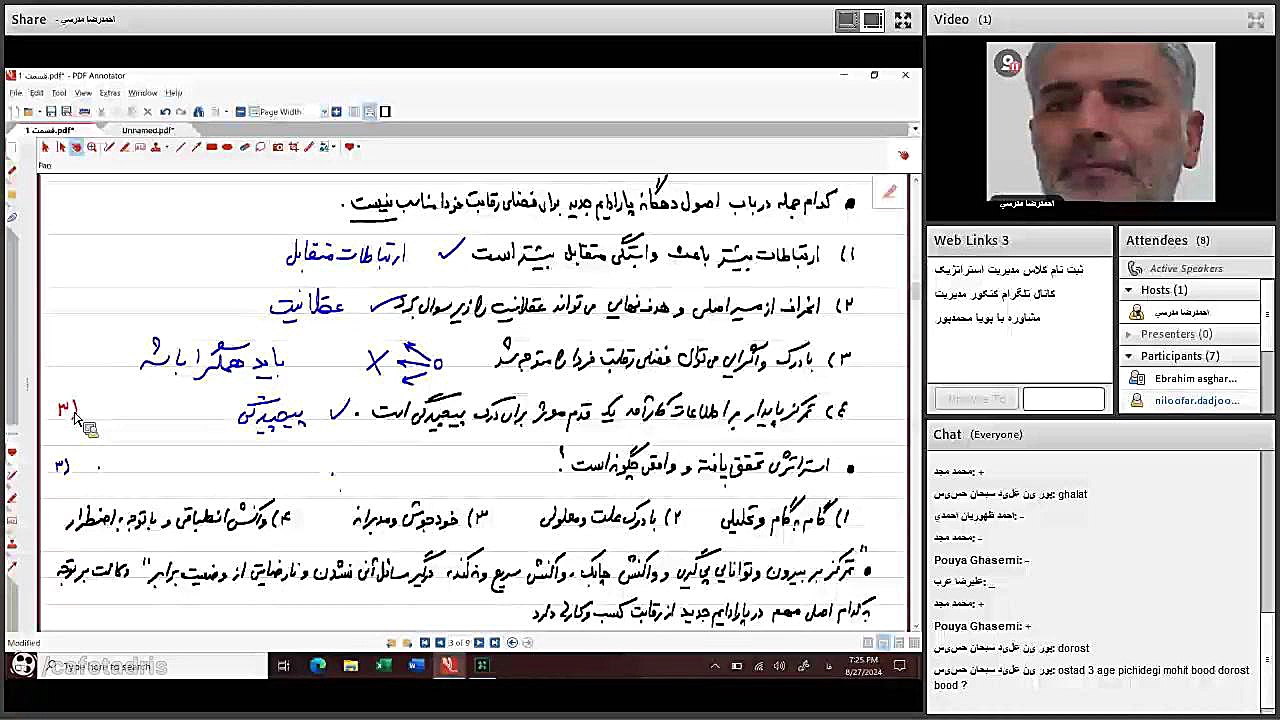 Share - احمدرضا مدرسي
قسمت 1.pdf* - PDF Annotator
File Edit Tool View Extras Window Help
Page Width
قسمت 1.pdf* Unnamed.pdf*
Pan
• کدام جمله در باب اصول دهگانه پارادایم جدید برای فضای رقابت فردا مناسب نیست .
۱) ارتباطات بیشتر باعث وابستگی متقابل بیشتر است ✓ ارتباطات متقابل
۲) انحراف از مسیر اصلی و هدف نهایی می تواند عقلانیت را زیر سوال برد ✓ عقلانیت
۳) با درک واگرایی می توان فضای رقابت فردا را متوجه شد X باید همگرا باشد
۴) تمرکز پایدار بر اطلاعات کارآمد یک قدم موثر برای درک پیچیدگی است . ✓ پیچیدگی
۳)
• استراتژی تحقق یافته و واقعی چگونه است ؟
۳)
۱) گام به گام و تحلیلی ۲) با درک علت و معلولی ۳) خودجوش و مدبرانه ۴) واکنش انطباقی و با توجه به اضطرار
• "تمرکز بر بیرون و توانایی پیگیری و واکنش چابک، واکنش سریع و نه کند، درگیر مسائل آنی نشدن و نارضایتی از وضعیت برابر" دلالت بر توجه
به کدام اصل مهم در پارادایم جدید از رقابت کسب و کاری دارد
Modified
3 of 9
Type here to search
/cafetadris
7:25 PM
8/27/2024
Video (1)
احمدرضا مدرسي
Web Links 3
ثبت نام کلاس مدیریت استراتژیک
کانال تلگرام کنکور مدیریت
مشاوره با پویا محمدپور
Browse To
Attendees (8)
Active Speakers
Hosts (1)
احمدرضا مدرسي
Presenters (0)
Participants (7)
Ebrahim asghar...
niloofar.dadjoo...
Chat (Everyone)
محمد مجد: +
ghalat
احمد ظهوریان احمدي: -
محمد مجد: -
Pouya Ghasemi: –
علیرضا عرب: _
محمد مجد: +
Pouya Ghasemi: +
dorost
ostad 3 age pichidegi mohit bood dorost
bood ?